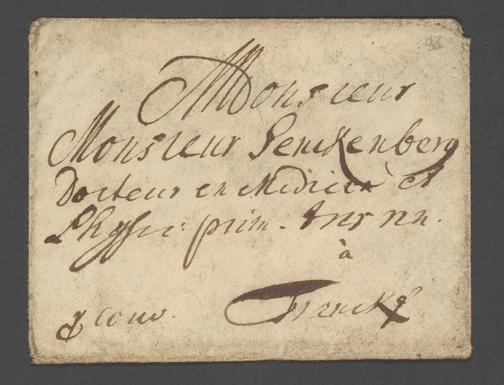 Monsieur
Monsieur Senckenberg
Docteur en Medicin et
Physic: prim.
à
Franckf
couv.